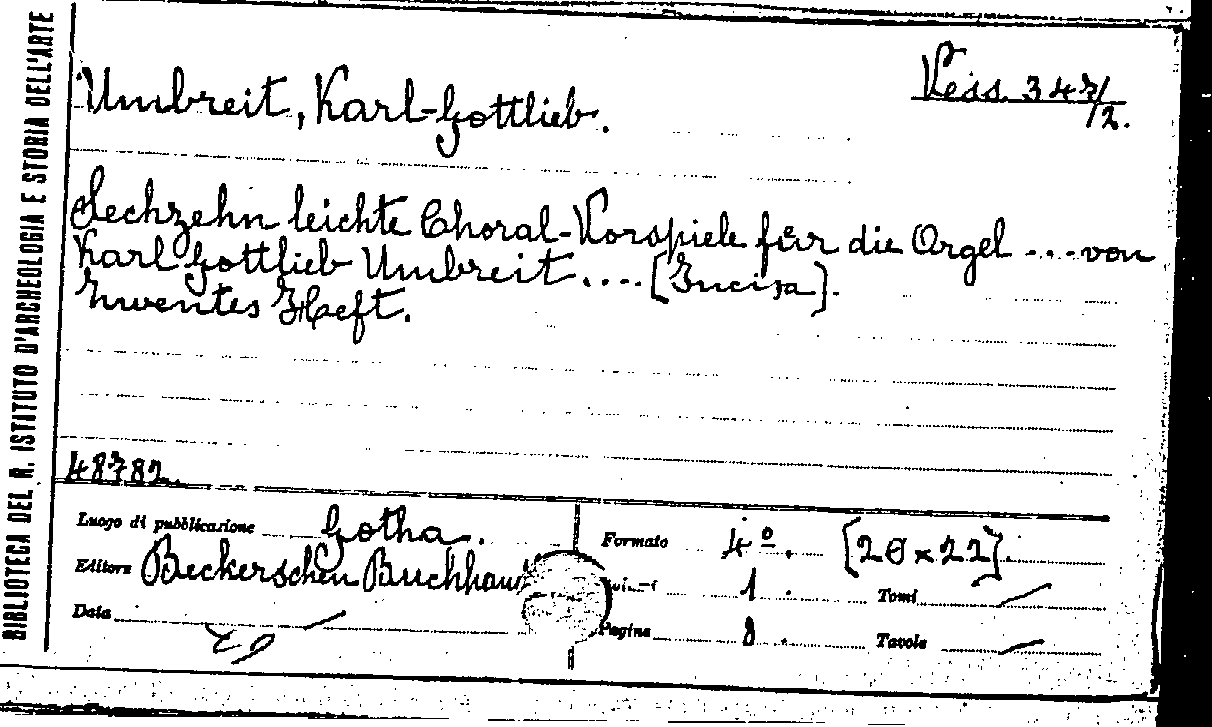 BIBLIOTECA DEL R. ISTITUTO D'ARCHEOLOGIA E STORIA DELL'ARTE
Vess. 347/2.
Umbreit, Karl-Gottlieb.
Sechzehn leichte Choral-Vorspiele für die Orgel .... von
Karl Gottlieb Umbreit .... [Incisa].
Zweytes Heft.
48782.
Luogo di pubblicazione Gotha.
Editore Beckerschen Buchhand
Data
Formato 4º. [26x22].
1. Tomi /
Pagine 8. Tavole /